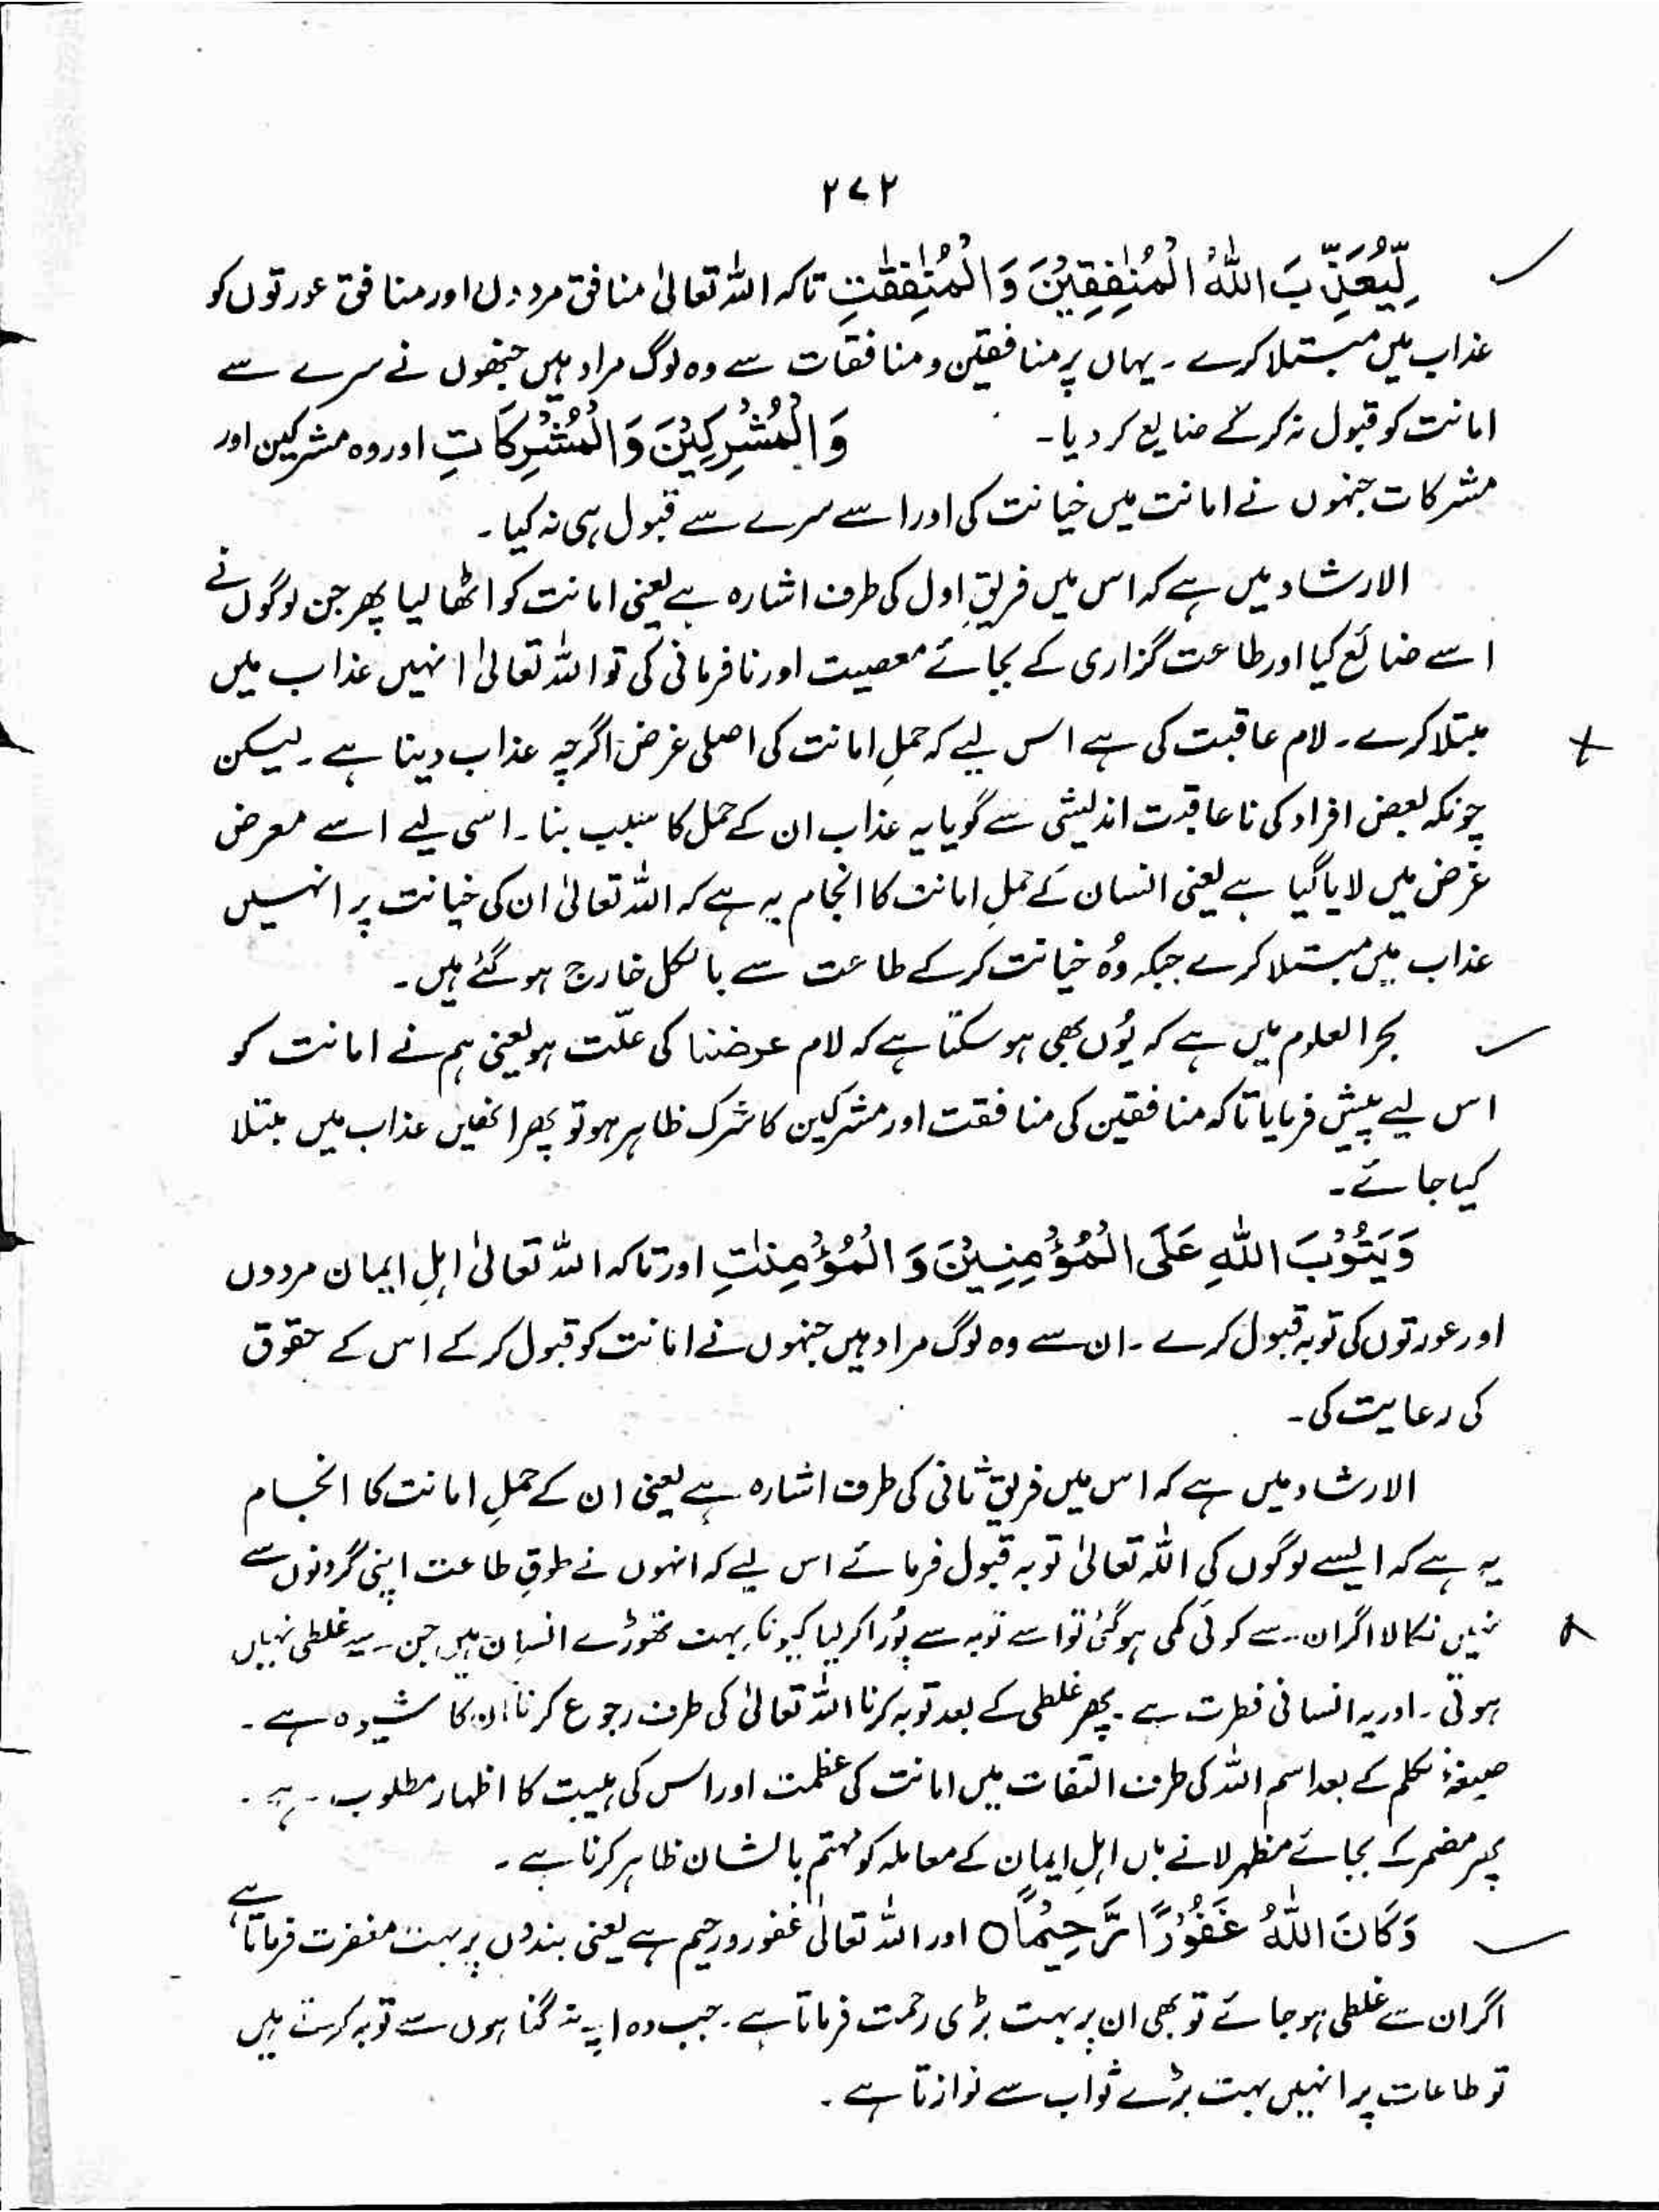 ۲۷۲
لِّيُعَذِّبَ اللّٰهُ الْمُنٰفِقِيْنَ وَالْمُنٰفِقٰتِ تاکہ اللہ تعالیٰ منافق مردوں اور منافق عورتوں کو
عذاب میں مبتلا کرے ۔ یہاں پر منافقین و منافقات سے وہ لوگ مراد ہیں جنھوں نے سرے سے
امانت کو قبول نہ کرکے ضایع کر دیا۔ وَالْمُشْرِكِيْنَ وَالْمُشْرِكَاتِ اور وہ مشرکین اور
مشرکات جنہوں نے امانت میں خیانت کی اور اسے سرے سے قبول ہی نہ کیا ۔
الارشاد میں ہے کہ اس میں فریقِ اول کی طرف اشارہ ہے یعنی امانت کو اٹھا لیا پھر جن لوگوں نے
اسے ضائع کیا اور طاعت گزاری کے بجائے معصیت اور نافرمانی کی تو اللہ تعالیٰ انہیں عذاب میں
مبتلا کرے ۔ لام عاقبت کی ہے اس لیے کہ حملِ امانت کی اصلی غرض اگرچہ عذاب دینا ہے ۔ لیکن
چونکہ بعض افراد کی ناعاقبت اندیشی سے گویا یہ عذاب ان کے حمل کا سبب بنا ۔ اسی لیے اسے معرض
غرض میں لایا گیا ہے یعنی انسان کے حملِ امانت کا انجام یہ ہے کہ اللہ تعالیٰ ان کی خیانت پر انہیں
عذاب میں مبتلا کرے جبکہ وُہ خیانت کرکے طاعت سے بالکل خارج ہوگئے ہیں ۔
بحر العلوم میں ہے کہ یُوں بھی ہو سکتا ہے کہ لام عرضنا کی علّت ہو یعنی ہم نے امانت کو
اس لیے پیش فرمایا تاکہ منافقین کی منافقت اور مشرکین کا شرک ظاہر ہو تو پھر انھیں عذاب میں مبتلا
کیا جائے ۔
وَيَتُوْبَ اللّٰهِ عَلَى الْمُؤْمِنِيْنَ وَالْمُؤْمِنٰتِ اور تاکہ اللہ تعالیٰ اہلِ ایمان مردوں
اور عورتوں کی توبہ قبول کرے ۔ ان سے وہ لوگ مراد ہیں جنہوں نے امانت کو قبول کرکے اس کے حقوق
کی رعایت کی ۔
الارشاد میں ہے کہ اس میں فریق ثانی کی طرف اشارہ ہے یعنی ان کے حملِ امانت کا انجام
یہ ہے کہ ایسے لوگوں کی اللہ تعالیٰ توبہ قبول فرمائے اس لیے کہ انہوں نے طوقِ طاعت اپنی گردنوں سے
نہیں نکالا اگر ان سے کوئی کمی ہوگئی تو اسے توبہ سے پُورا کر لیا کیونکہ بہت تھوڑے انسان ہیں جن سے غلطی نہیں
ہوتی ۔ اور یہ انسانی فطرت ہے ۔ پھر غلطی کے بعد توبہ کرنا اللہ تعالیٰ کی طرف رجوع کرنا ان کا شیوہ ہے ۔
صیغۂ تکلم کے بعد اسم اللہ کی طرف التفات میں امانت کی عظمت اور اس کی ہیبت کا اظہار مطلوب ہے ۔
پھر مضمر کے بجائے مظہر لانے میں اہلِ ایمان کے معاملہ کو مہتم بالشان ظاہر کرنا ہے ۔
وَكَانَ اللّٰهُ غَفُوْرًا رَّحِيْمًا ○ اور اللہ تعالیٰ غفور و رحیم ہے یعنی بندوں پر بہت مغفرت فرماتا ہے
اگر ان سے غلطی ہوجائے تو بھی ان پر بہت بڑی رحمت فرماتا ہے ۔ جب وہ اپنے گناہوں سے توبہ کرتے ہیں
تو طاعات پر انہیں بہت بڑے ثواب سے نوازتا ہے ۔